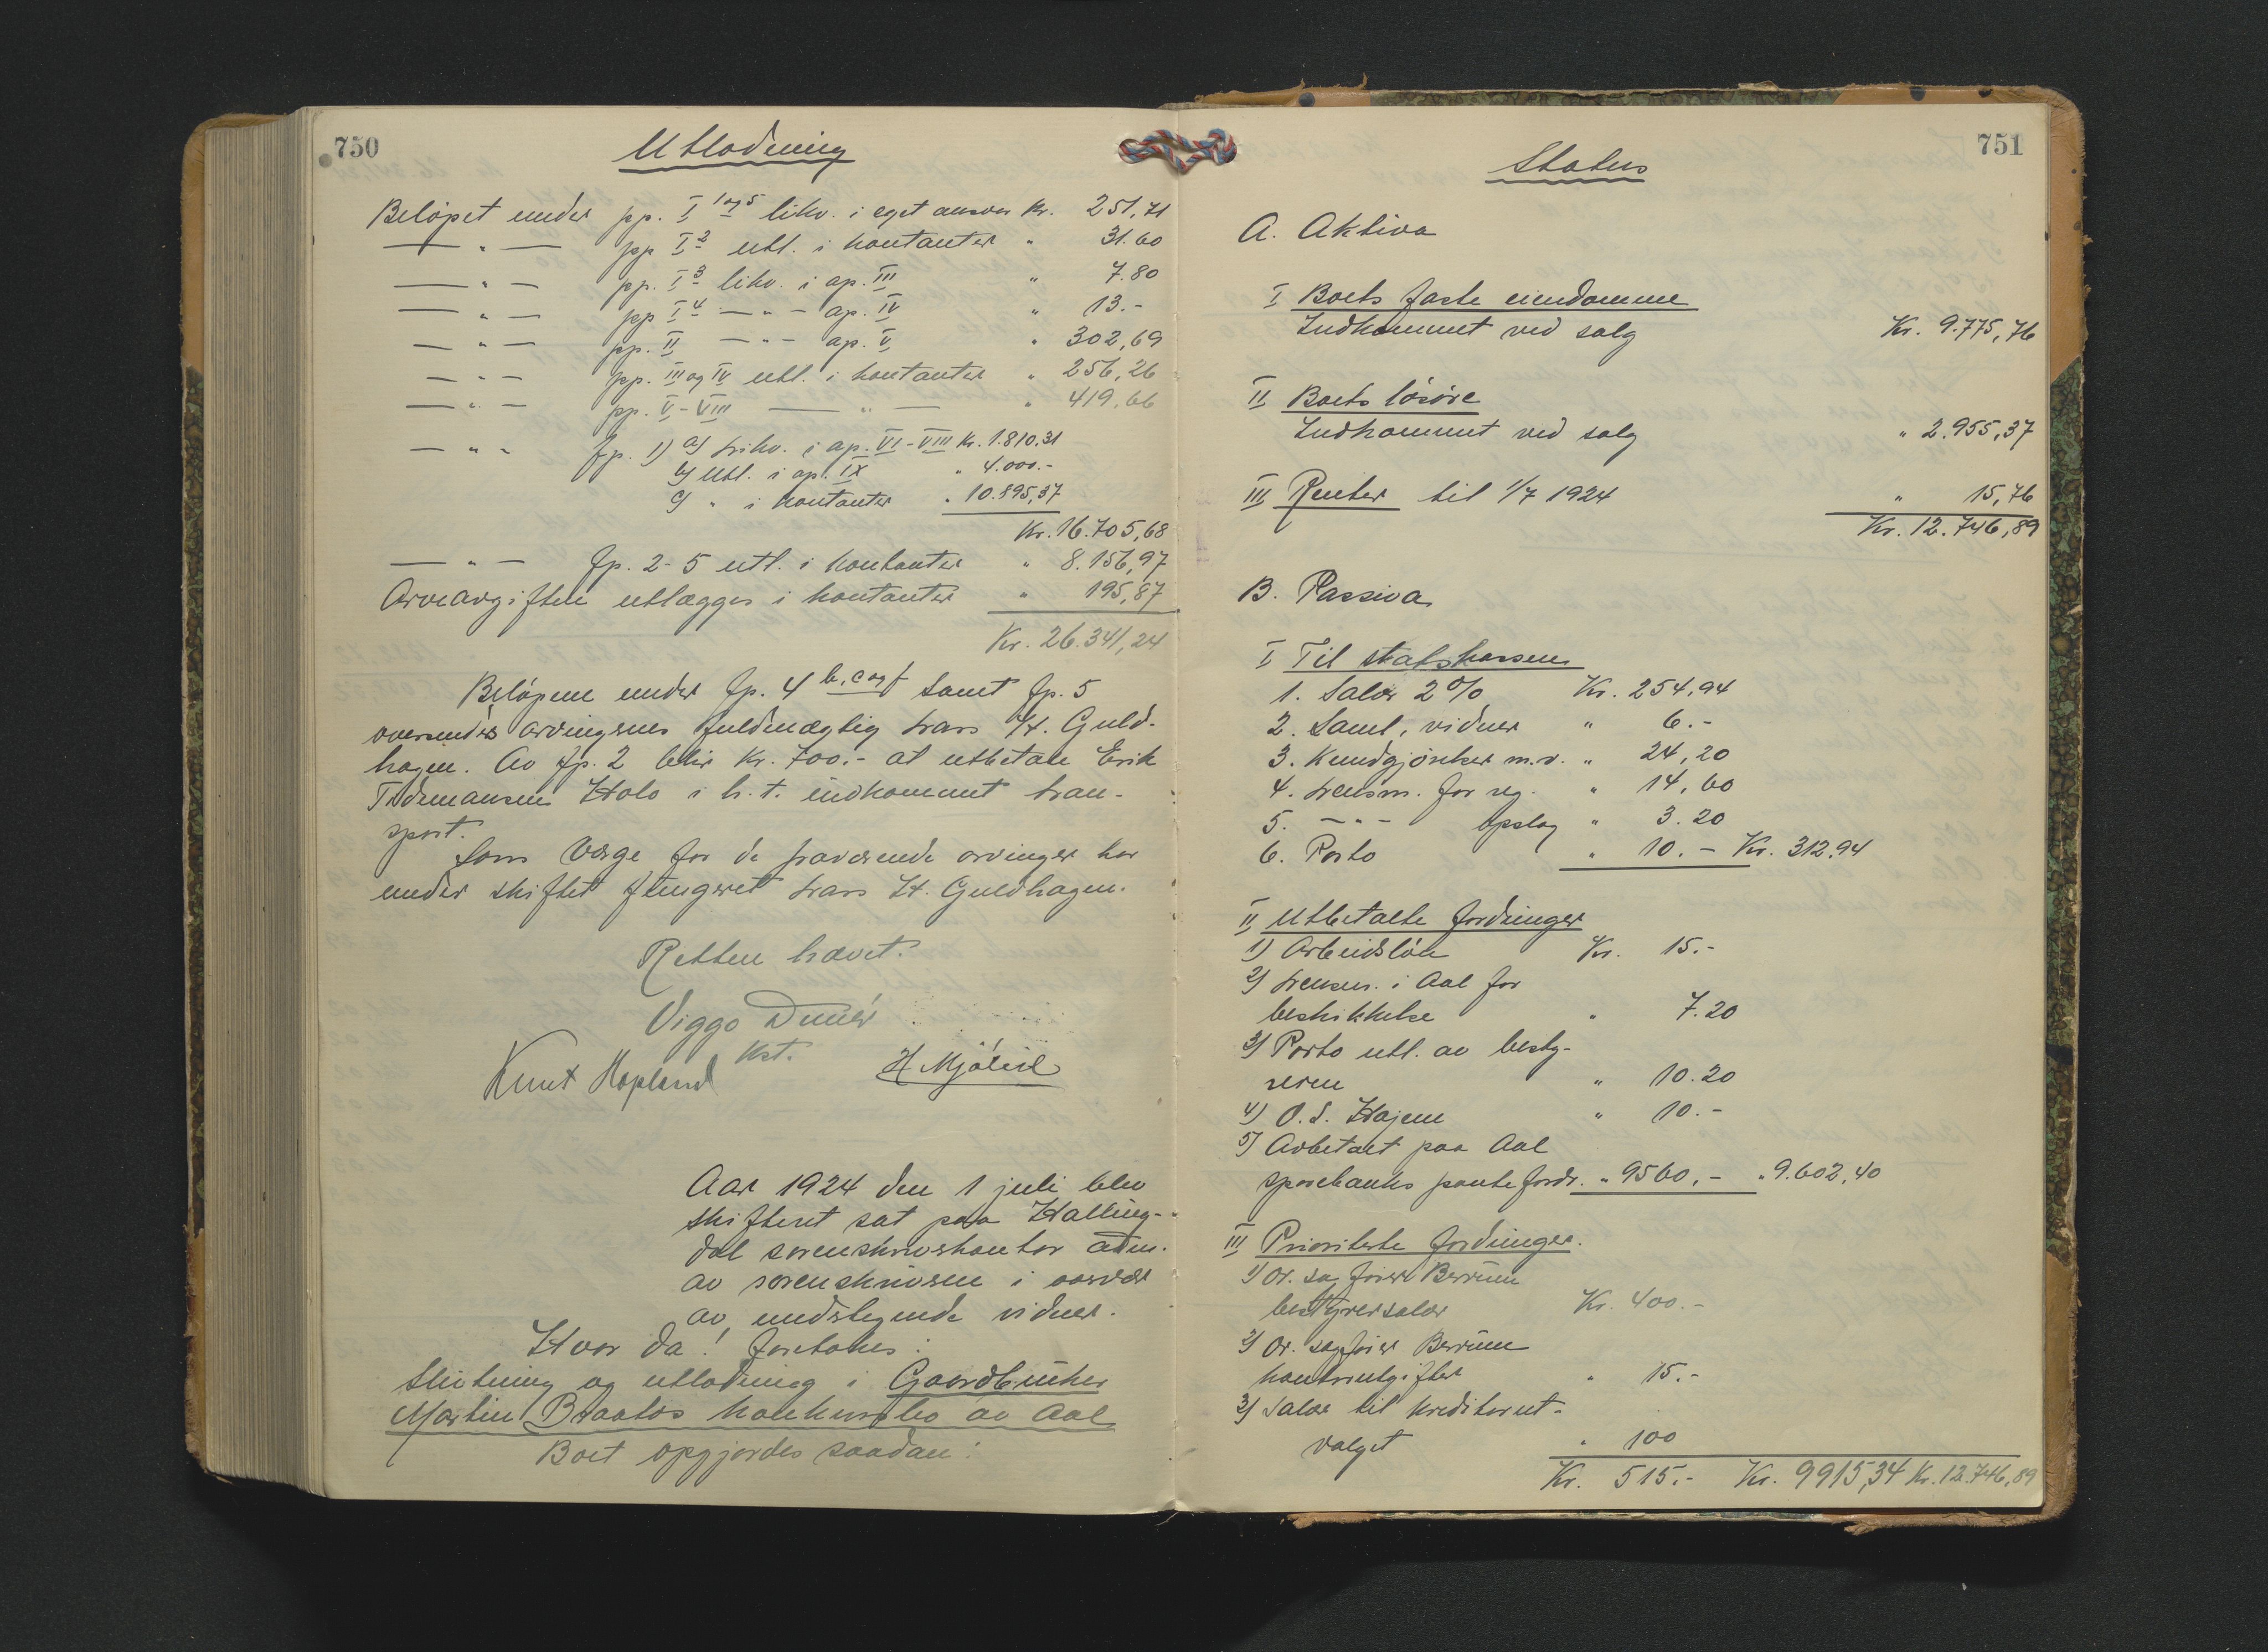 750
Utlodning
Beløpet under pp. I 1 og 5 likv. i eget ansvar Kr. 251,71
— " — pp I 2 utl. i kontanter " 31.60
— " — pp. I 3 likv. i ap. III " 7.80
— " — pp I 4 — " — ap. IV " 13.-
— " — pp. II — " — ap. V " 302,69
— " — pp. III og IV utl. i kontanter " 256,26
— " — pp. V-VIII — " — " 419,66
— " — fp. 1) a) Likv. i ap. VI-VIII Kr. 1.810,31
b) Utl. i ap. IX " 4.000.-
c) " i kontanter " 10.895,37
Kr. 16.705,68
— " — fp. 2-5 utl. i kontanter " 8.156,97
Arveavgiften utlægges i kontanter " 195,87
Kr. 26.341,24
Beløpene under fp. 4 b, c og f samt fp. 5
oversendes arvingenes fuldmægtig Lars H. Guld-
hagen. Av fp. 2 blir Kr. 700.- at utbetale Erik
Tidemansen Holo i h.t. indkommet tran-
sport.
Som Verge for de fraværende arvinger har
under skiftet fungeret Lars H. Guldhagen.
Retten hævet.
Viggo
Kst.
Knut Hopland H Mjølid
Aar 1924 den 1 juli blev
skifteret sat paa Halling-
dal sorenskriverkontor adm.
av sorenskriveren i overvær
av undertegnede vidner.
Hvor da! foretokes:
Slutning og utlodning i Gaardbruker
Martin Braatos konkursbo av Aal
Boet opgjordes saadan:
751
Status
A. Aktiva
I Boets faste eiendomme
Indkommet ved salg Kr. 9.775,76
II Boets løsøre
Indkommet ved salg " 2.955,37
III Renter til 1/7 1924 " 15,76
Kr. 12.746,89
B. Passiva
I Til statskassen
1. Salær 2% Kr. 254,94
2. Saml, vidner " 6.-
3. Kundgjørelser m.v. " 24,20
4. Lensm. for reg. " 14,60
5. — " — opslag " 3.20
6. Porto " 10.- Kr. 312,94
II Utbetalte fordringer
1) Arbeidsløn Kr. 15.-
2) Lensm. i Aal for
beskikkelse " 7.20
3) Porto utl. av besty-
reren " 10.20
4) O. S. Hajem " 10.-
5) Avbetalt paa Aal
sparebanks pantefordr. " 9560,- " 9.602,40
III Prioriterte fordringer.
1) Or. sagfører Berrum
bestyrersalær Kr. 400.-
2) Or. sagfører Berrum
kontorutgifter " 15.-
3) Salær til kreditorut-
valget " 100
Kr. 515.- Kr. 9915,34 Kr. 12.746,89